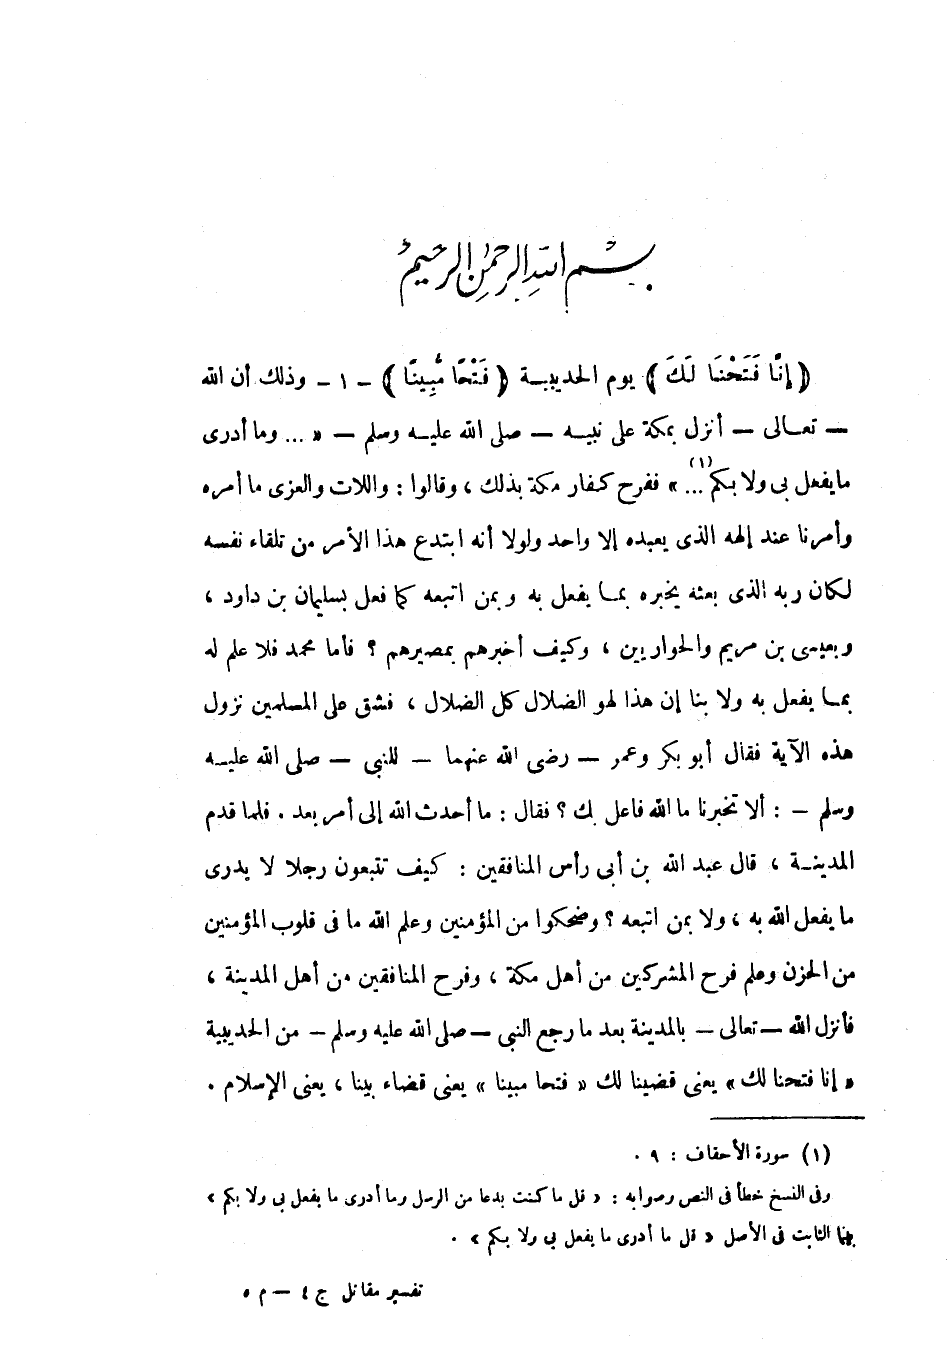 بسم الله الرحمن الرحيم
﴿ إِنَّا فَتَحْنَا لَكَ ﴾ يوم الحديبية ﴿ فَتْحًا مُّبِينًا ﴾ - ١ - وذلك أن الله
— تعالى — أنزل بمكة على نبيه — صلى الله عليه وسلم — « ... وما أدرى
ما يفعل بى ولا بكم ... (١) » ففرح كفار مكة بذلك ، وقالوا : واللات والعزى ما أمره
وأمرنا عند إلهه الذى يعبده إلا واحد ولولا أنه ابتدع هذا الأمر من تلقاء نفسه
لكان ربه الذى بعثه يخبره بما يفعل به وبمن اتبعه كما فعل بسليمان بن داود ،
وبعيسى بن مريم والحواريين ، وكيف أخبرهم بمصيرهم ؟ فأما محمد فلا علم له
بما يفعل به ولا بنا إن هذا لهو الضلال كل الضلال ، فشق على المسلمين نزول
هذه الآية فقال أبو بكر وعمر — رضى الله عنهما — للنبى — صلى الله عليه
وسلم — : ألا تخبرنا ما الله فاعل بك ؟ فقال : ما أحدث الله إلى أمر بعد . فلما قدم
المدينة ، قال عبد الله بن أبى رأس المنافقين : كيف تتبعون رجلا لا يدرى
ما يفعل الله به ، ولا بمن اتبعه ؟ وضحكوا من المؤمنين وعلم الله ما فى قلوب المؤمنين
من الحزن وعلم فرح المشركين من أهل مكة ، وفرح المنافقين من أهل المدينة ،
فأنزل الله — تعالى — بالمدينة بعد ما رجع النبى — صلى الله عليه وسلم — من الحديبية
« إنا فتحنا لك » يعنى قضينا لك « فتحا مبينا » يعنى قضاء بينا ، يعنى الإسلام .
(١) سورة الأحقاف : ٩ .
وفى النسخ خطأ فى النص وصوابه : « قل ما كنت بدعا من الرسل وما أدرى ما يفعل بى ولا بكم »
بينما الثابت فى الأصل « قل ما أدرى ما يفعل بى ولا بكم » .
تفسير مقاتل ج ٤ — م ٥